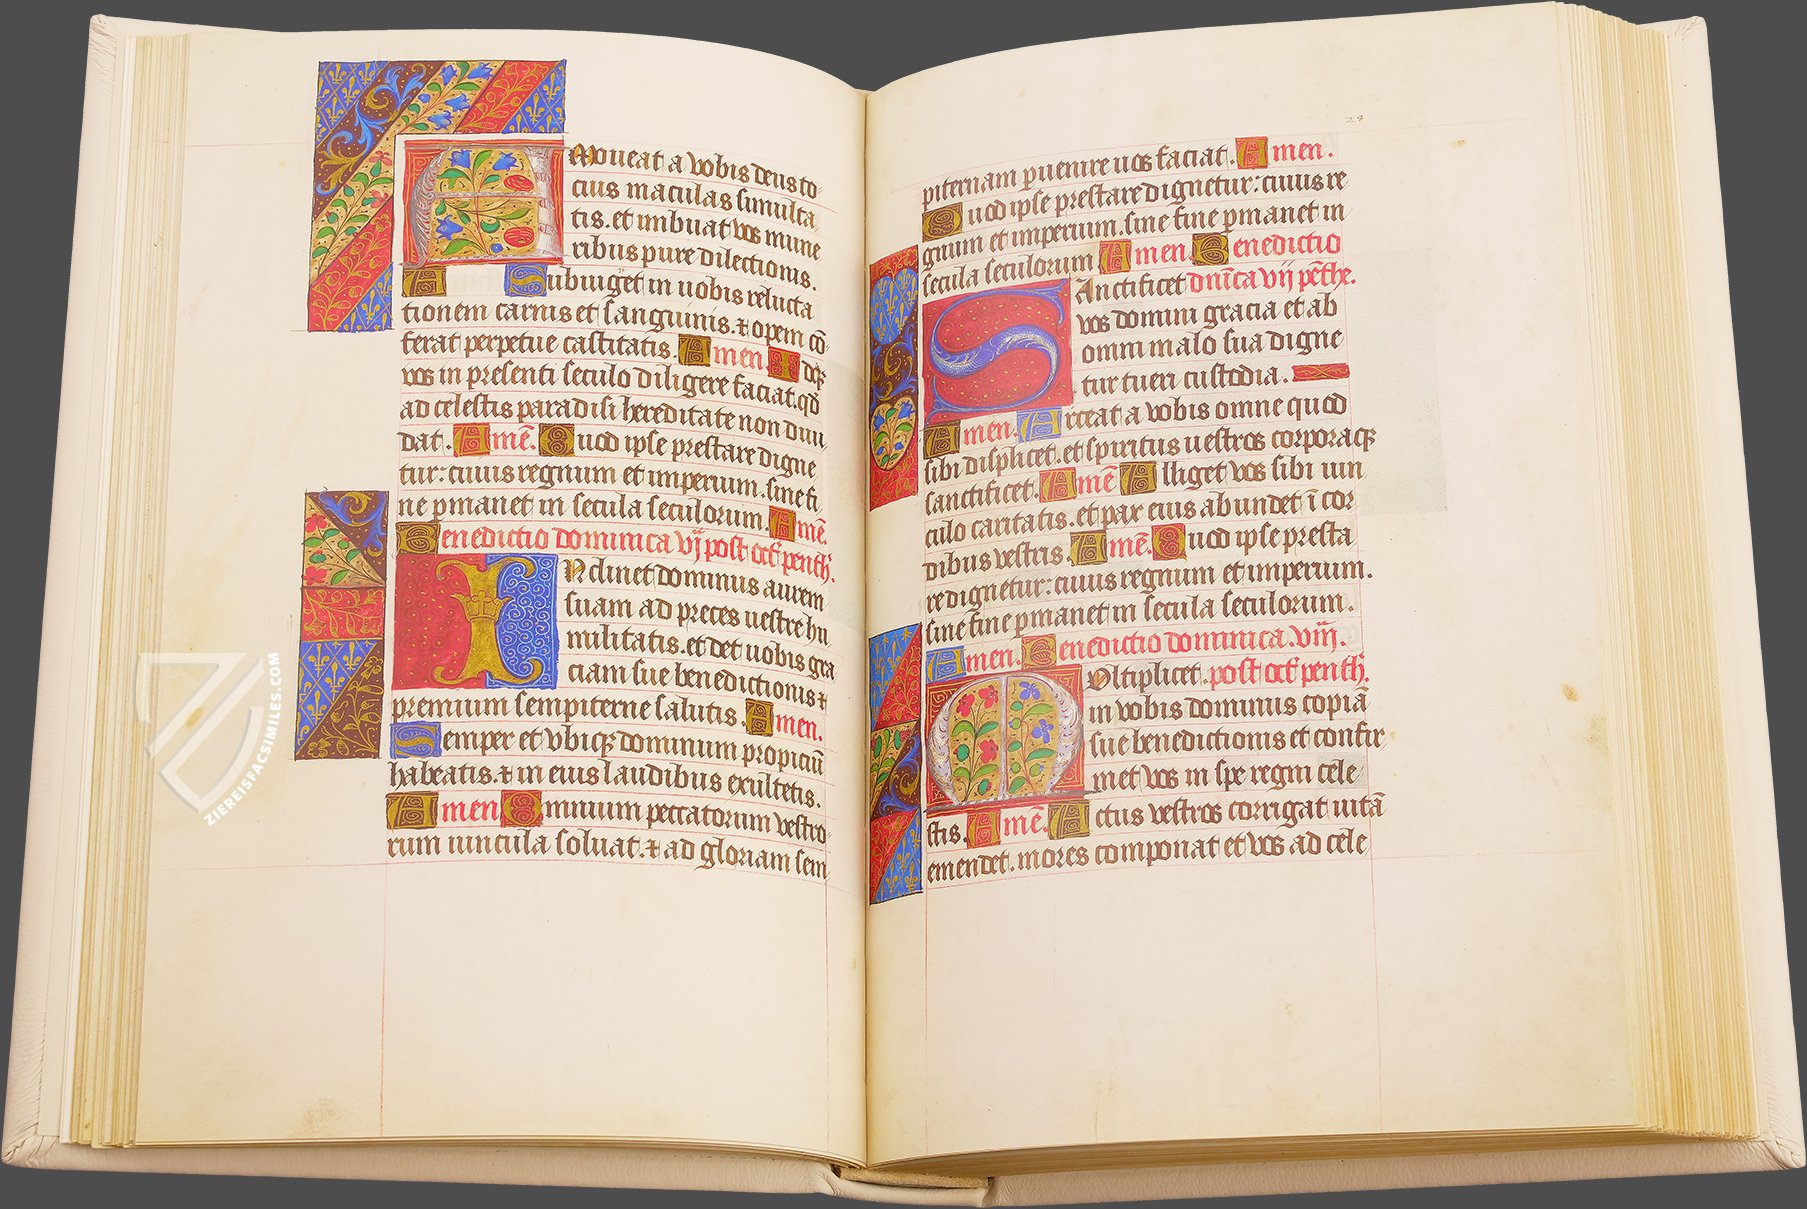 AMoueat a vobis deus to
cius maculas simulta
tis. et imbuat vos mune
ribus pure dilectionis.
A Subiuget in uobis relucta
tionem carnis et sanguinis. ⁊ opem cō
ferat perpetue castitatis. Amen. Idqꝫ
vos in presenti seculo diligere faciat. qd̄
ad celestis paradisi hereditate non diui
dat. Amē. Quod ipse prestare digne
tur: cuius regnum et imperium. sine fi
ne ꝑmanet in secula seculorum. Amē.
Benedictio dominica vj post oct' penth'.
INclinet dominus aurem
suam ad preces uestre hu
militatis. et det uobis gra
ciam sue benedictionis ⁊
premium sempiterne salutis. Amen.
Semper et vbiqꝫ dominum propiciū
habeatis. ⁊ in eius laudibus exultetis.
Amen. Omnium peccatorum vestro
rum uincula soluat. ⁊ ad gloriam sem
24
piternam ꝑuenire uos faciat. Amen.
Quod ipse prestare dignetur: cuius re
gnum et imperium. sine fine ꝑmanet in
secula seculorum Amen. Benedictio
SAnctificet dn̄ica vij pēthe.
vos domini gracia et ab
omni malo sua digne
tur tueri custodia.
Amen. Arceat a vobis omne quod
sibi displicet. et spiritus uestros corporaqꝫ
sanctificet. Amē Alliget vos sibi uin
culo caritatis. et pax eius abundet ī cor
dibus vestris. Amē. Quod ipse presta
re dignetur: cuius regnum et imperium.
sine fine ꝑmanet in secula seculorum.
Amen. Benedictio dominica. viij.
MOltiplicet. post oct' penth'.
in vobis dominus copiā
sue benedictionis et confir
met vos in spe regni cele
stis. Amē. Actus vestros corrigat uitā
emendet. mores componat et vos ad cele
ZIEREISFACSIMILES.COM